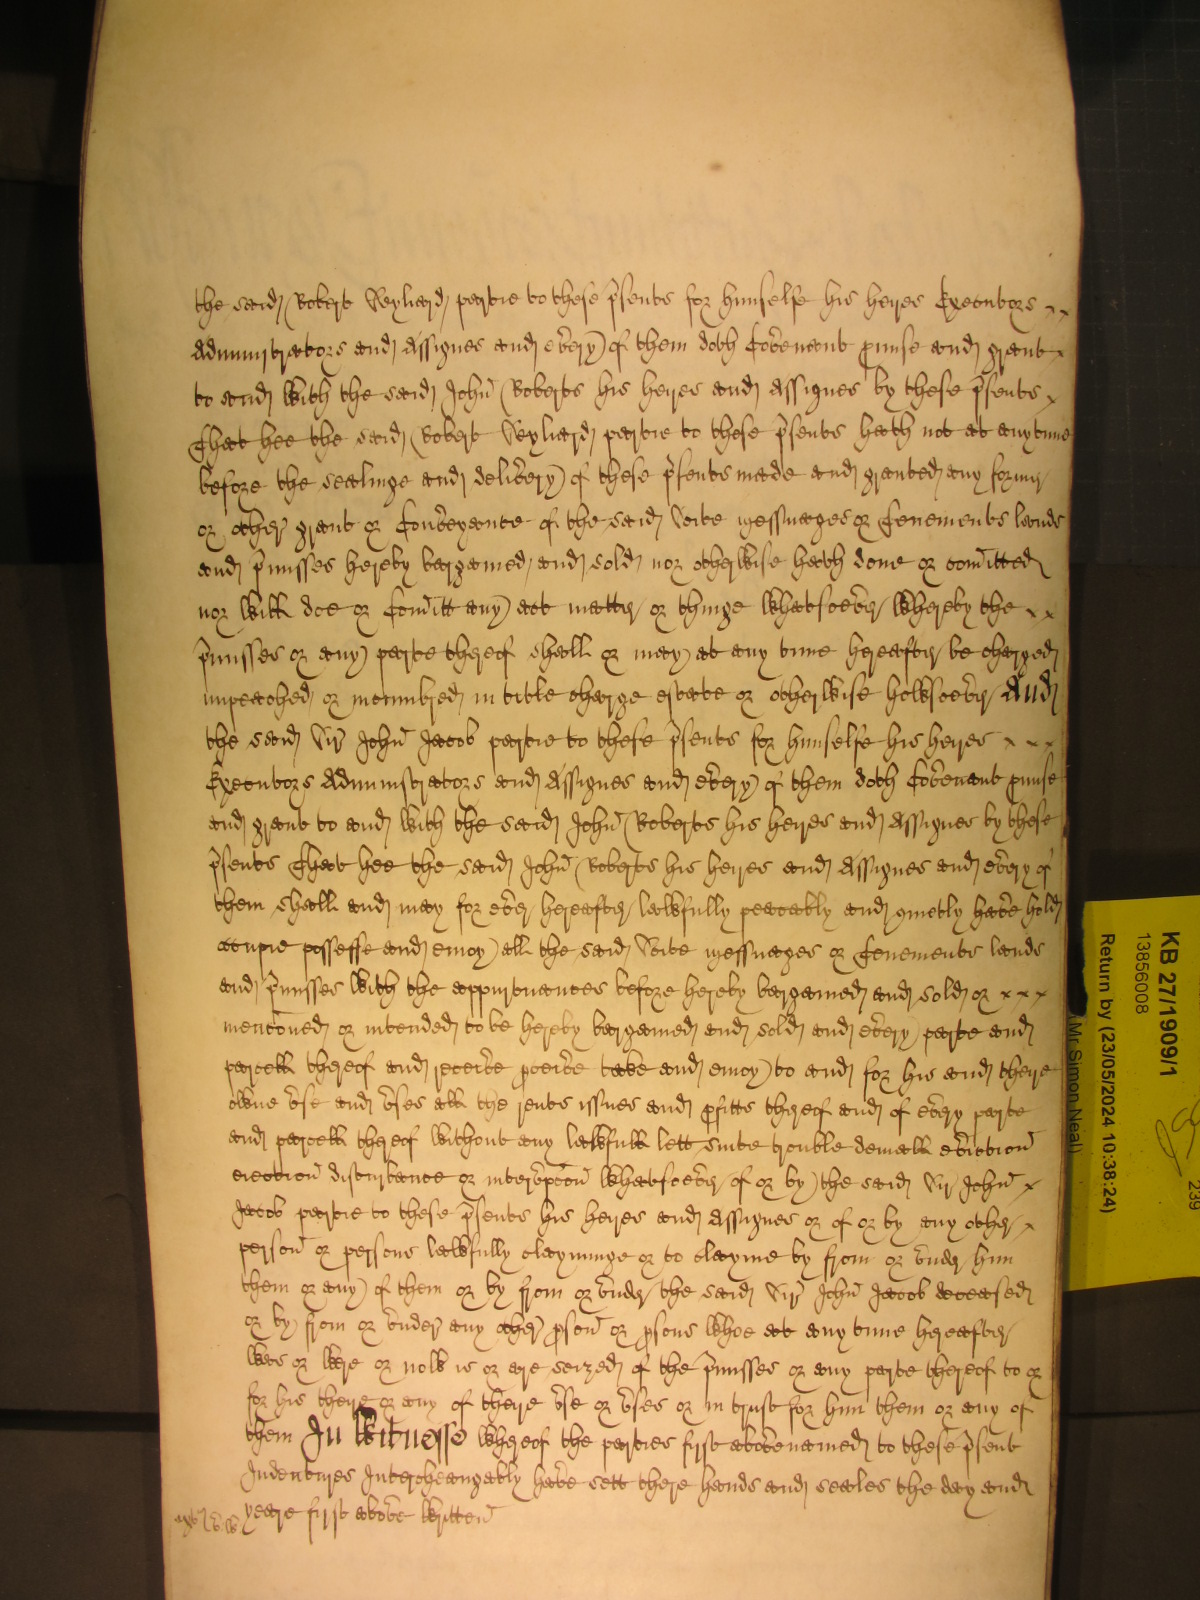 the said Robert Weyliard partie to these p̃sents for himselfe his heires Executors x x
Administrators and Assignes and eṽy of them doth Covenant p̱mise and grant x
to and with the said John Roberts his heires and Assignes by these p̃sents x
That hee the said Robert Weyliard partie to these p̃sents hath not at any time
before the sealinge and delivery of these p̃sents made and granted any former
or other grant or Conveyance of the said Scite messuages or Tenements lands
and p̃misses hereby bargained and sold nor otherwise hath done or com̃itted
nor will doe or Com̃itt any act matter or thinge whatsoever whereby the x x
p̃misses or any parte thereof shall or may at any time hereafter be charged
impeached or incumbred in title charge estate or otherwise howsoever And
the said Sir John Jacob partie to these p̃sents for himselfe his heires x x x
Executors Administrators and Assignes and every of them doth Covenant p̱mise
and grant to and with the said John Roberts his heires and Assignes by these
p̃sents That hee the said John Roberts his heires and Assignes and every of
them shall and may for ever hereafter lawfully peaceably and quietly have hold
occupie possesse and enioy all the said Scite messuages or Tenements lands
and p̃misses with the appurtnances before hereby bargained and sold or x x x
menc̃oned or intended to be hereby bargained and sold and every parte and
parcell thereof and receive p̱ceive take and enioy to and for his and there
owne use and uses all the rents issues and p̱fitts thereof and of every parte
and parcell thereof without any lawfull lett suite trouble deniall eviction
eiection disturbance or interrupc̃on whatsoever of or by the said Sir John x
Jacob partie to these p̃sents his heires and Assignes or of or by any other x
person or persons lawfully clayminge or to clayme by from or under him
them or any of them or by from or under the said Sir John Jacob deceased
or by from or under any other p̱son or p̱sons whoe at any time hereafter
was or were or now is or are seized of the p̃misses or any parte thereof to or
for his there or any of there use or uses or in trust for him them or any of
them In Witnesse whereof the parties first abovenamed to these p̃sent
Indentures Interchangably have sett there hands and seales the day and
yeare first above written
KB 27/1909/1
13856008
Return by (23/05/2024 10:38:24)
Mr Simon Neal)
239